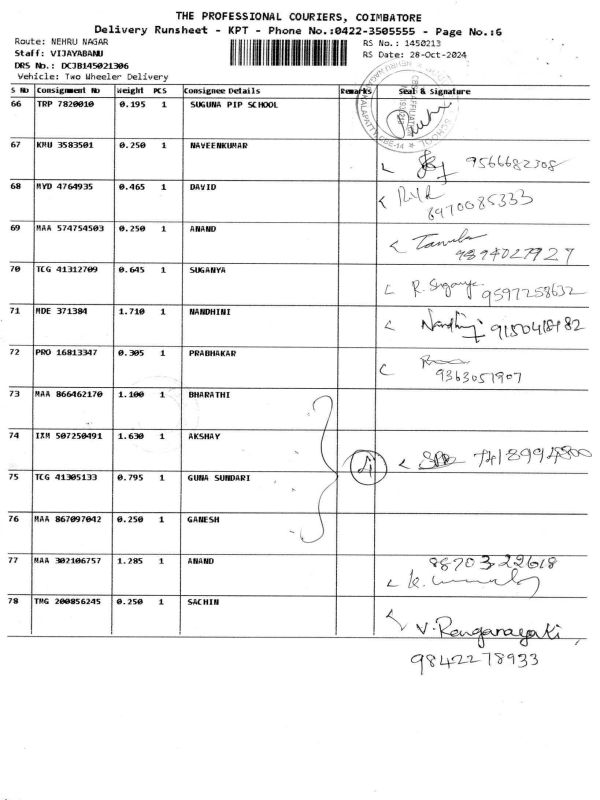 THE PROFESSIONAL COURIERS, COIMBATORE
Delivery Runsheet - KPT - Phone No.:0422-3505555 - Page No.:6
Route: NEHRU NAGAR RS No.: 1450213
Staff: VIJAYABANU RS Date: 28-Oct-2024
DRS No.: DCJB145021306
Vehicle: Two Wheeler Delivery
S No Consignment No Weight PCS Consignee Details Remarks Seal & signature
66 TRP 7820010 0.195 1 SUGUNA PIP SCHOOL
67 KMU 3583501 0.250 1 NAVEENKUMAR
9566682308
68 MYD 4764935 0.465 1 DAVID
8970085333
69 MAA 574754503 0.250 1 ANAND
9894027927
70 TCG 41312709 0.645 1 SUGANYA
R. Suganya 9597258632
71 MDE 371384 1.710 1 NANDHINI
Nandhini 9150418982
72 PRO 16813347 0.305 1 PRABHAKAR
9363051907
73 MAA 866462170 1.100 1 BHARATHI
74 IXM 507250491 1.630 1 AKSHAY
4 7418994800
75 TCG 41305133 0.795 1 GUNA SUNDARI
76 MAA 867097042 0.250 1 GANESH
77 MAA 302106757 1.285 1 ANAND
8870322618
78 TMG 200856245 0.250 1 SACHIN
V. Ranganayaki
9842278933